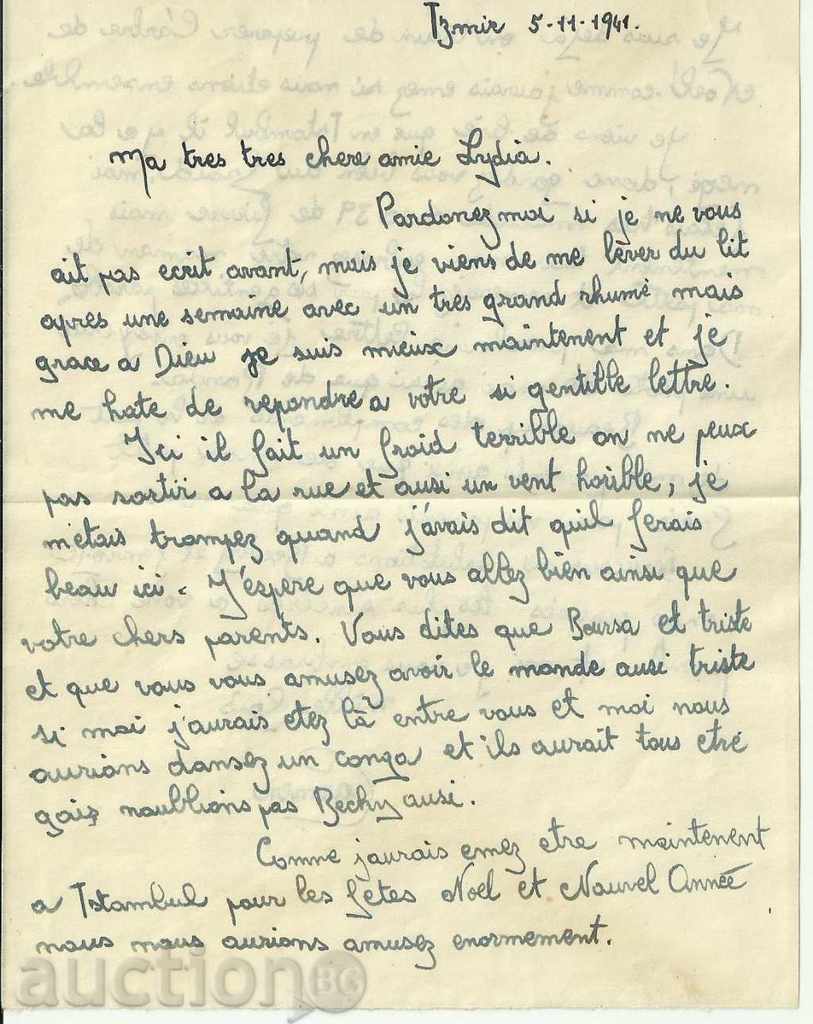 Izmir 5-11-1941.
Ma tres tres chere amie Lydia.
Pardonezmoi si je ne vous
ait pas ecrit avant, mais je viens de me lèver du lit
apres une semaine avec un tres grand rhumè mais
grace a Dieu je suis mieux maintenent et je
me hate de repondre a votre si gentille lettre.
Ici il fait un froid terrible on ne peux
pas sortir a la rue et ausi un vent horible, je
m'etais trompez quand j'avais dit quil ferais
beau ici. J'espere que vous allez bien ainsi que
votre chers parents. Vous dites que Boursa et triste
et que vous vous amusez avoir le monde ausi triste
si moi j'aurais etez là entre vous et moi nous
aurions dansez un conga et ils aurait tous etré
gais noublions pas Becky ausi.
Comme jaurais emez etre maintenent
a Istambul pour les fêtes Noel et Nouvel Année
nous nous aurions amusez enormement.
auction BG